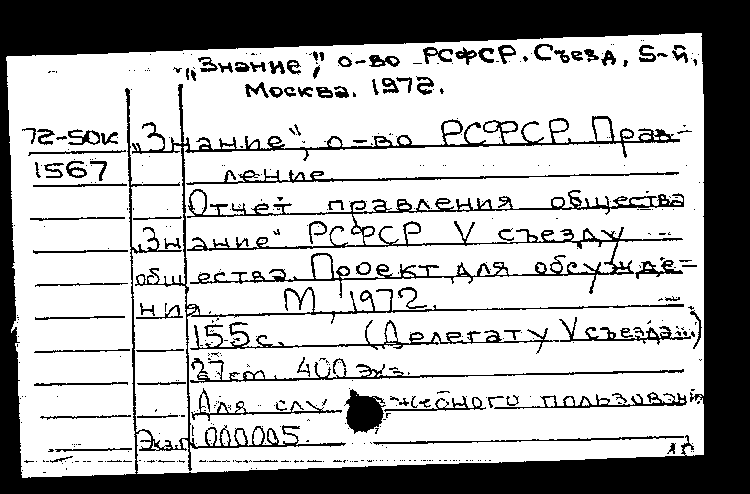 „Знание", о-во РСФСР. Съезд, 5-й,
Москва. 1972.
72-50к „Знание", о-во РСФСР. Прав-
1567 ление
Отчет правления общества
„Знание" РСФСР V съезду
общества. Проект для обсужде-
ния. М, 1972.
155 с. (Делегату V съезда...)
27 см. 400 экз.
Для служебного пользования
Экз.п 000005.